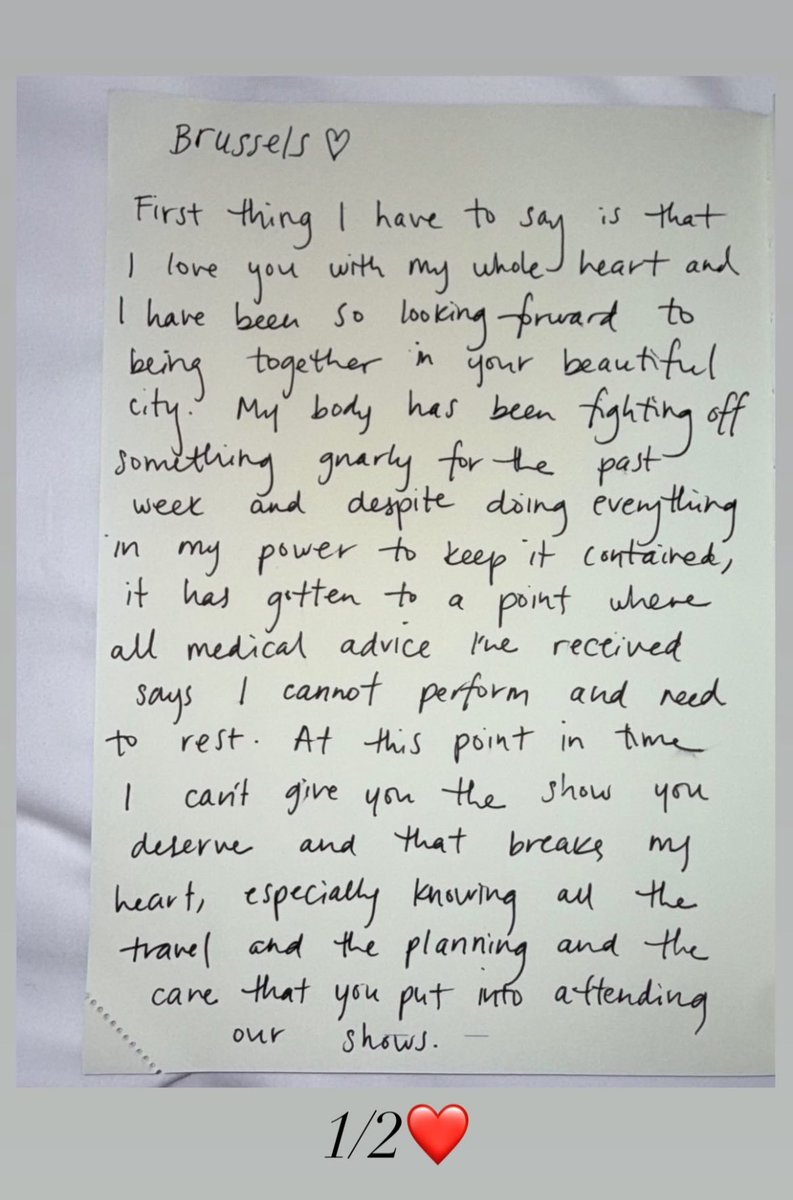 Brussels ♡
First thing I have to say is that
I love you with my whole heart and
I have been so looking forward to
being together in your beautiful
city. My body has been fighting off
something gnarly for the past
week and despite doing everything
in my power to keep it contained,
it has gotten to a point where
all medical advice I've received
says I cannot perform and need
to rest. At this point in time
I can't give you the show you
deserve and that breaks my
heart, especially knowing all the
travel and the planning and the
care that you put into attending
our shows. —
1/2❤️